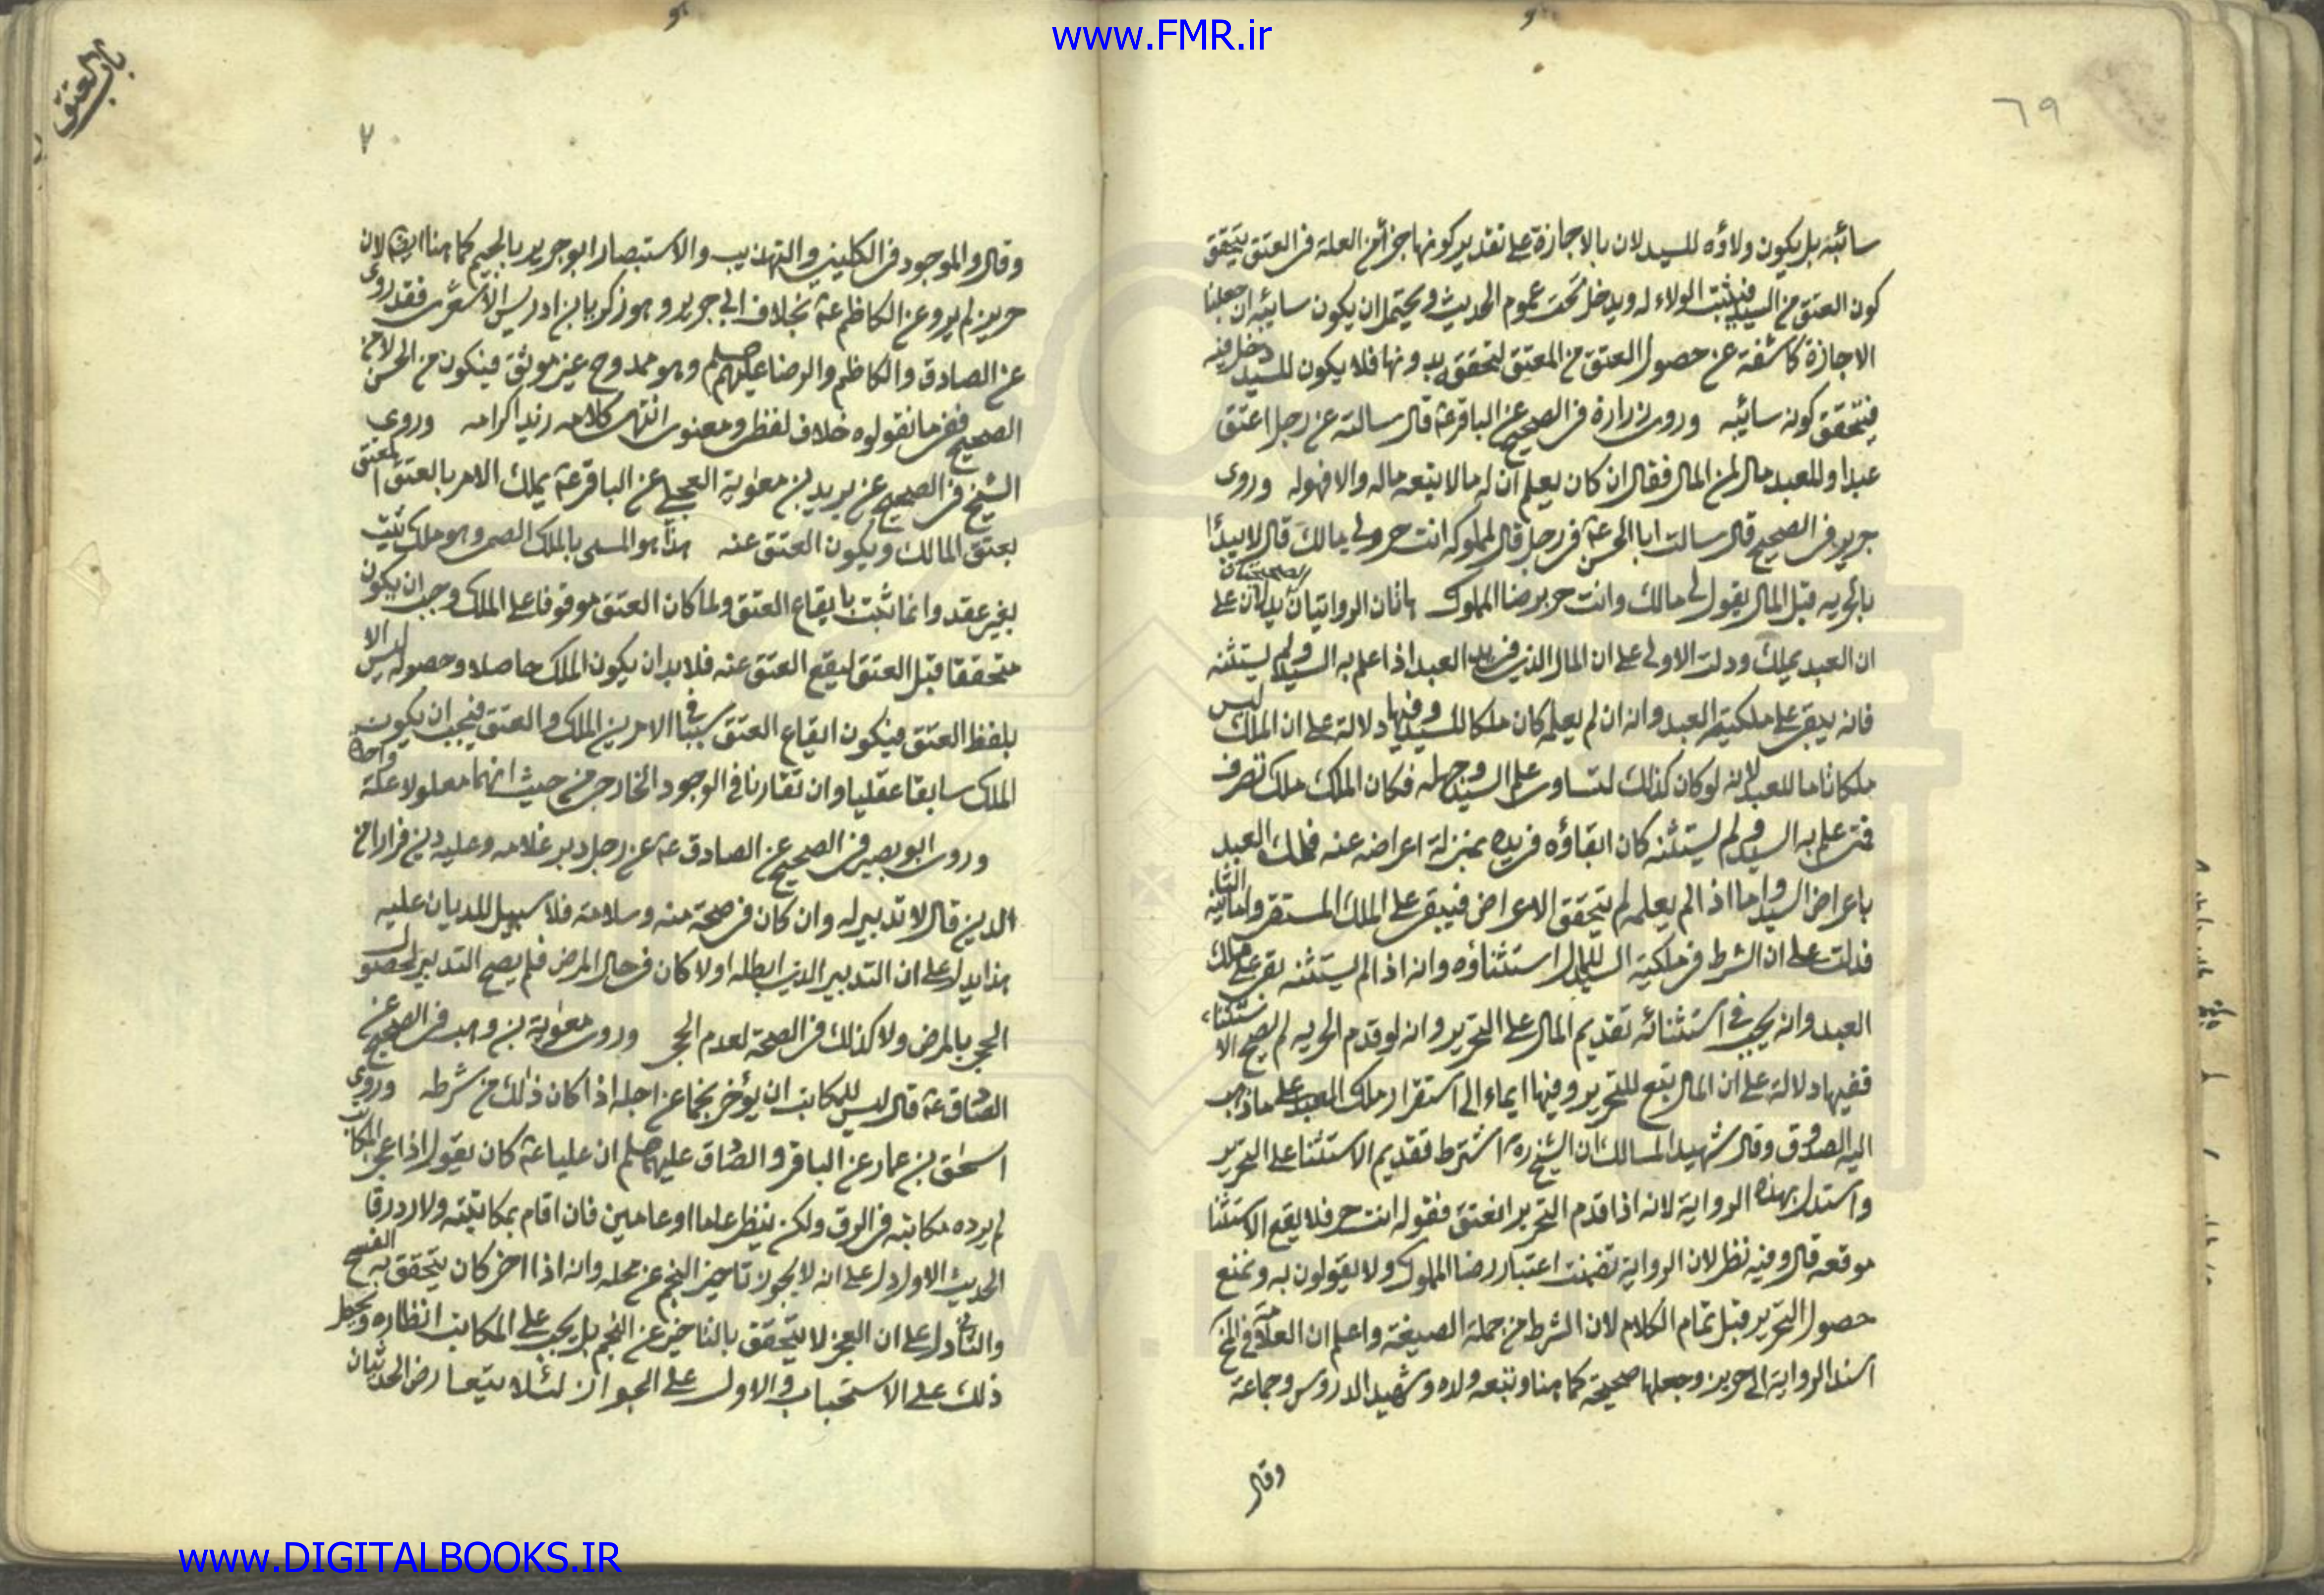 www.FMR.ir
٦٩
سائبة بل يكون ولاؤه للسيد لان بالاجازة على تقدير كونها جزأ من العلة فى العتق يتحقق
كون العتق من السيد فيثبت الولاء له ويدخل تحت عموم الحديث ويحتمل ان يكون سايبه ان جعلنا
الاجازة كاشفة عن حصول العتق من المعتق لتحقق بدونها فلا يكون للسيد دخل فيه
فيتحقق كونه سائبه وروى زرارة فى الصحيح عن الباقر عه قال سالته عن رجل اعتق
عبدا وللعبد مال لمن المال فقال ان كان يعلم ان له مالا تبعه ماله والا فهوله وروى
جرير فى الصحيح قال سالت ابا الحسن عه فى رجل قال لمملوكه انت حر ولى مالك قال لا يبدأ
بالحريه قبل المال يقول لى مالك وانت حر برضا المملوك هاتان الروايتان يدلان على
ان العبد يملك ودلت الاولى على ان المال الذى فى يد العبد اذا علم به السيد ولم يستثنه
فانه يبقى على ملكية العبد وانه ان لم يعلم كان ملكا للسيد وفيها دلالة على ان الملك ليس
ملكا تاما للعبد لانه لو كان كذلك لتساوى علم السيد وجهله فكان الملك ملك تصرف
فمتى علم به السيد ولم يستثنه كان ابقاؤه فى يده بمنزلة اعراضه عنه فملك العبد
باعراض السيد واما اذا لم يعلم لم يتحقق الاعراض فيبقى على الملك المستقر واما الثانية
فدلت على ان الشرط فى ملكية السيد للمال استثناؤه وانه اذا لم يستثنه بقى على ملك
العبد وانه يجب فى استثنائه تقديم المال على التحرير وانه لو قدم الحريه لم يصح الاستثناء
ففيها دلالة على ان المال تبع للتحرير وفيها ايماء الى استقرار ملك العبد على ما ذهب
اليه الصدوق وقال شهيد المسالك ان الشيخ ره اشترط تقديم الاستثنا على التحرير
واستدل بهذه الرواية لانه اذا قدم التحرير انعتق فقوله انت حر فلا يقع الاستثنا
موقعه قال وفيه نظر لان الرواية تضمنت اعتبار رضا المملوك ولا يقولون به ونمنع
حصول التحرير قبل تمام الكلام لان الشرط من جملة الصيغة واعلم ان العلامة فى المخ
اسند الرواية الى حريز وجعلها صحيحة كما هنا وتبعه ولده وشهيد الدروس وجماعة
وقال
باب العتق
٧٠
وقال والموجود فى الكلينى والتهذيب والاستبصار ابو جرير بالجيم كما هنا ايضا لان
حريز لم يرو عن الكاظم عه بخلاف ابى جرير وهو زكريا بن ادريس الاشعرى فقد روى
عن الصادق والكاظم والرضا عليهم صلم وهو ممدوح غير موثق فيكون من الحسن لا من
الصحيح ففى ما نقلوه خلاف لفظى ومعنوى انتهى كلامه زيد اكرامه وروى
الشيخ فى الصحيح عن بريد بن معوية العجلى عن الباقر عه يملك الامر بالعتق المعتق
بعتق المالك ويكون العتق عنه هذا هو المسمى بالملك الضمنى وهو ملك يثبت
بغير عقد وانما ثبت بايقاع العتق ولما كان العتق موقوفا على الملك وجب ان يكون
متحققا قبل العتق ليقع العتق عنه فلا بد ان يكون الملك حاصلا وحصوله ليس الا
بلفظ العتق فيكون ايقاع العتق سببا فى الامرين الملك والعتق فيجب ان يكون
الملك سابقا عقليا وان تقارنا فى الوجود الخارجى من حيث انهما معلولا علة واحدة
وروى ابو بصير فى الصحيح عن الصادق عه عن رجل دبر غلامه وعليه دين فرارا من
الدين قال لا تدبير له وان كان فى صحة منه وسلامة فلا سبيل للديان عليه
هذا يدل على ان التدبير الذى ابطله اولا كان فى حال المرض فلم يصح التدبير لحصول
الحجر بالمرض ولا كذلك فى الصحة لعدم الحجر وروى معوية بن وهب فى الصحيح عن
الصادق عه قال ليس للمكاتب ان يؤخر نجما عن اجله اذا كان ذلك من شرطه وروى
اسحق بن عمار عن الباقر والصادق عليهما صلم ان عليا عه كان يقول اذا عجز المكاتب
لم يرده مكاتبه فى الرق ولكن ينظر عاما او عامين فان اقام بمكاتبته والا رد رقا
الحديث الاول دل على انه لا يجوز تاخير النجم عن محله وانه اذا اخر كان يتحقق به الفسخ
والثانى دل على ان العجز لا يتحقق بالتاخير عن النجم بل يجب على المكاتب انظاره ويحمل
ذلك على الاستحباب والاول على الجواز لئلا يتعارض الحديثان
www.DIGITALBOOKS.IR